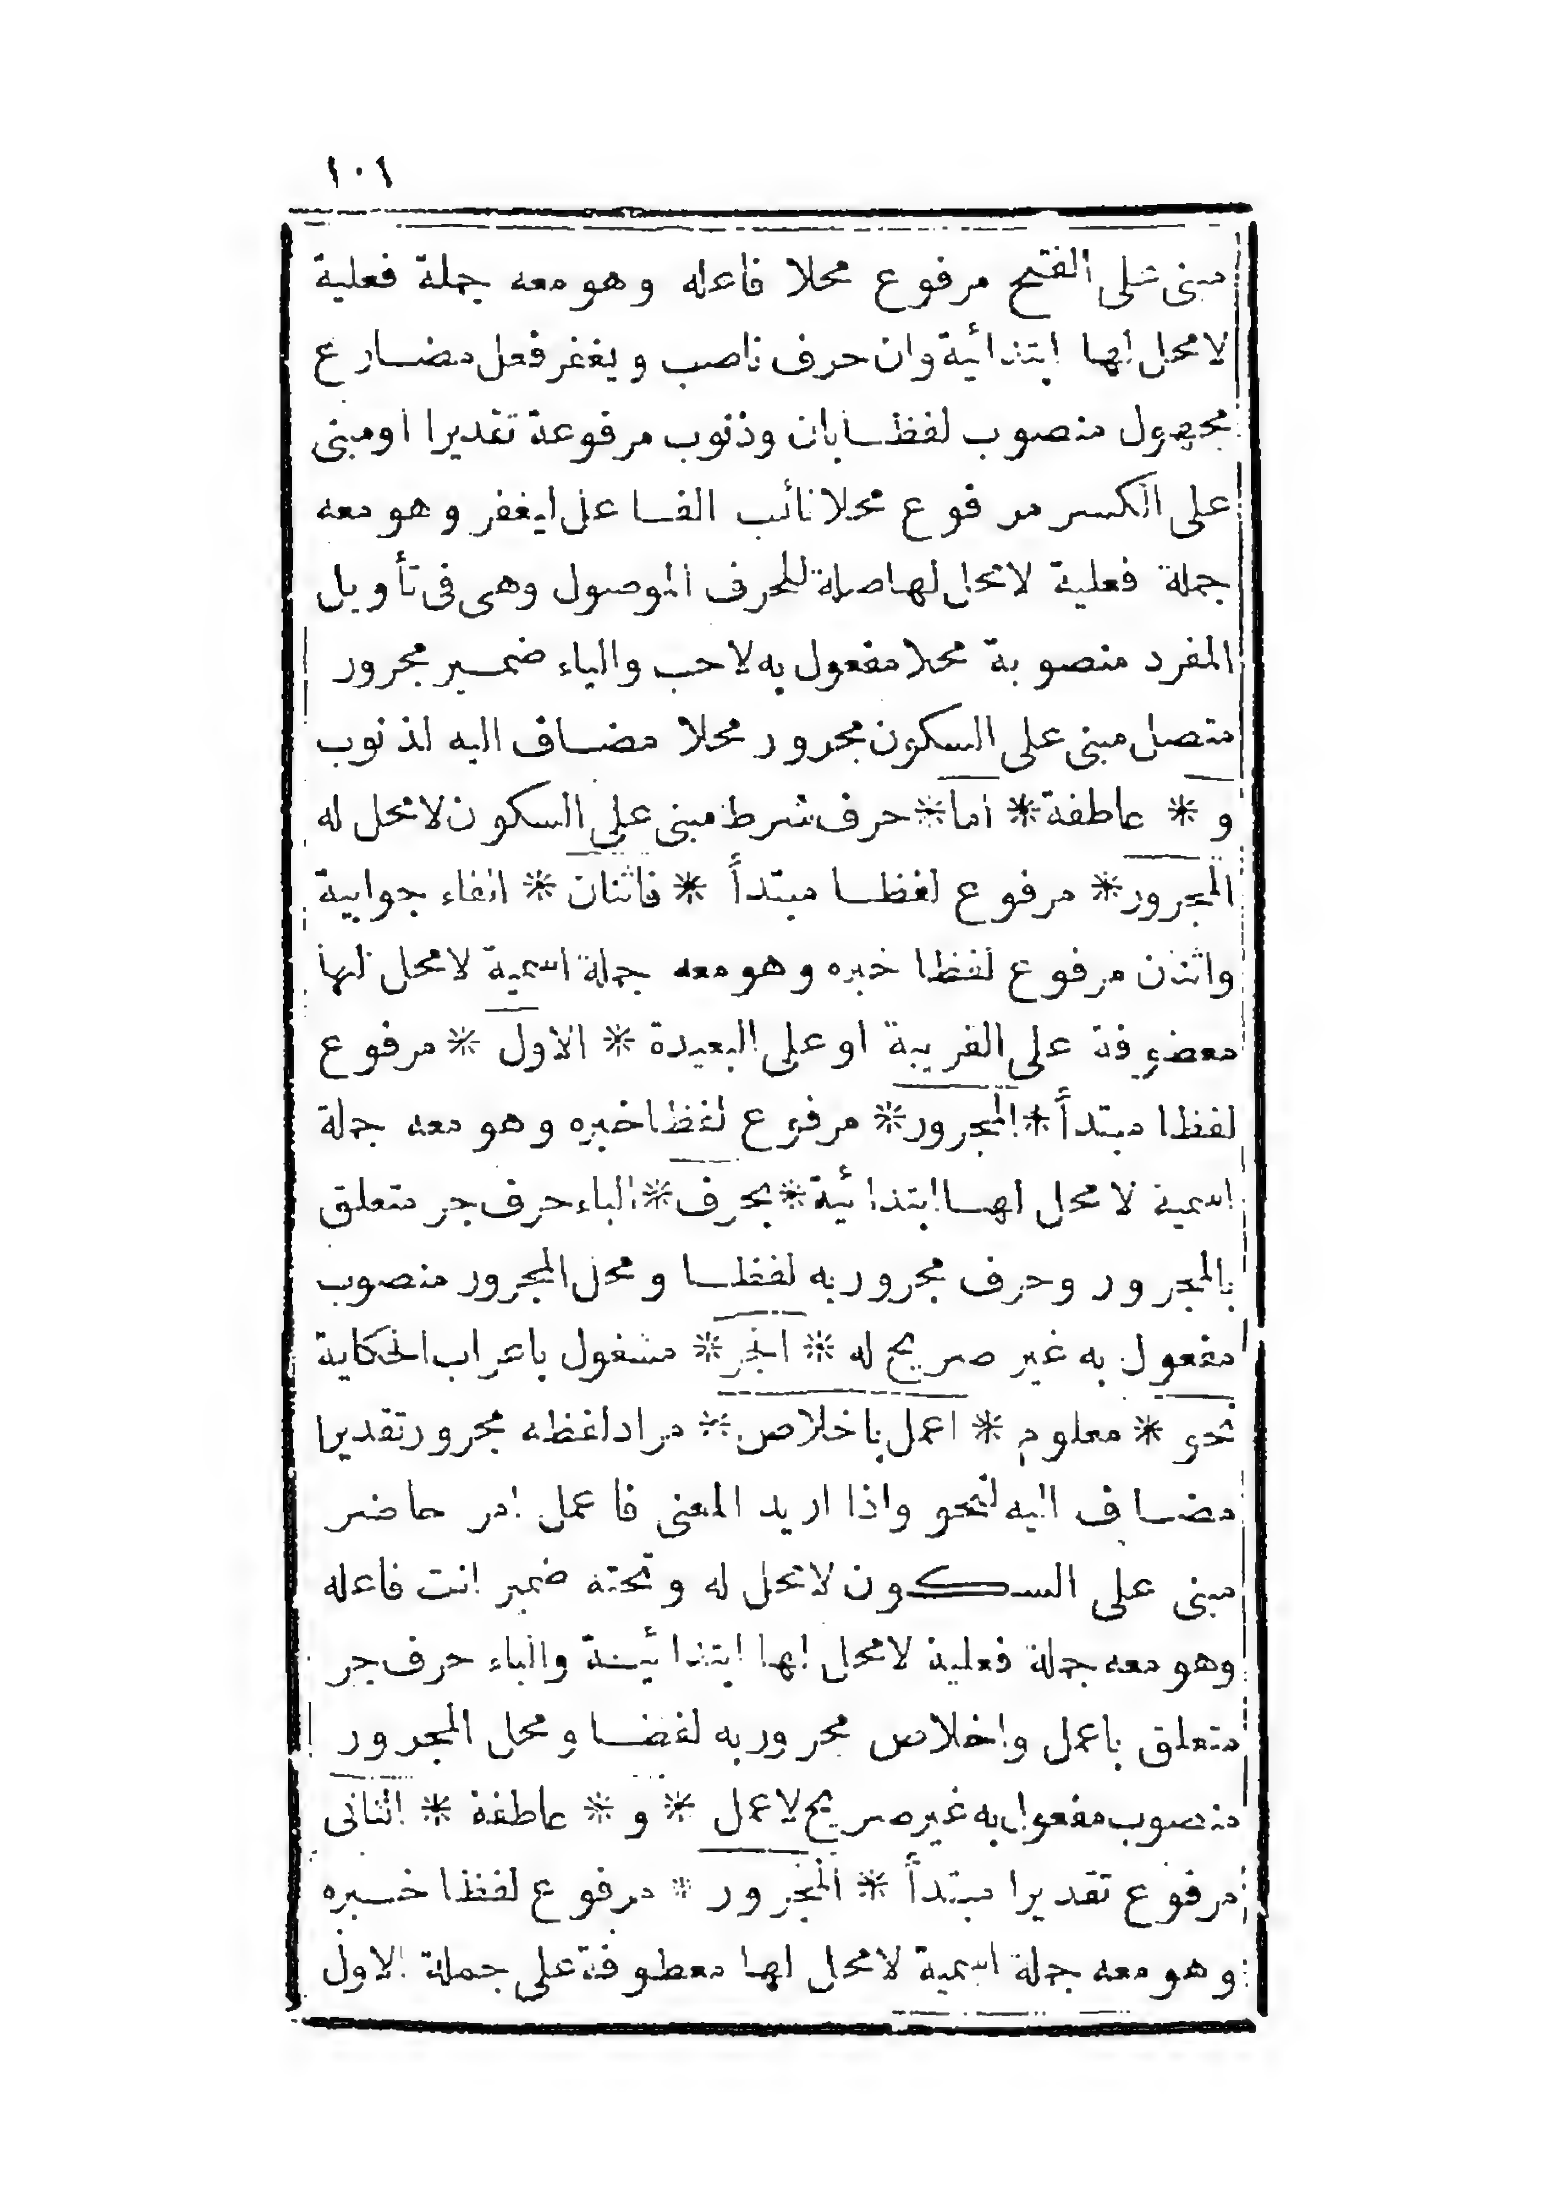 ١٠١
مبنى على الفتح مرفوع محلا فاعله وهو معه جملة فعلية
لا محل لها ابتدائية وان حرف ناصب ويغفر فعل مضارع
مجهول منصوب لفظا بان وذنوب مرفوعة تقديرا او مبنى
على الكسر مرفوع محلا نائب الفاعل ليغفر وهو معه
جملة فعلية لا محل لها صلة للحرف الموصول وهى فى تأويل
المفرد منصوبة محلا مفعول به لاحب والياء ضمير مجرور
متصل مبنى على السكون مجرور محلا مضاف اليه لذنوب
و * عاطفة * اما * حرف شرط مبنى على السكون لا محل له
المجرور * مرفوع لفظا مبتدأ * فاثنان * الفاء جوابية
واثنان مرفوع لفظا خبره وهو معه جملة اسمية لا محل لها
معضوفة على القريبة او على البعيدة * الاول * مرفوع
لفظا مبتدأ * المجرور * مرفوع لفظا خبره وهو معه جملة
اسمية لا محل لها ابتدائية * بحرف * الباء حرف جر متعلق
بالمجرور وحرف مجرور به لفظا ومحل المجرور منصوب
مفعول به غير صريح له * الجر * مشغول باعراب الحكاية
نحو * معلوم * اعمل باخلاص * مراد لفظه مجرور تقديرا
مضاف اليه لنحو واذا اريد المعنى فاعمل امر حاضر
مبنى على السكون لا محل له وتحته ضمير انت فاعله
وهو معه جملة فعلية لا محل لها ابتدائية والباء حرف جر
متعلق باعمل واخلاص مجرور به لفضا ومحل المجرور
منصوب مفعول به غير صريح لاعمل * و * عاطفة * الثانى
مرفوع تقديرا مبتدأ * المجرور * مرفوع لفظا خبره
وهو معه جملة اسمية لا محل لها معطوفة على جملة الاول